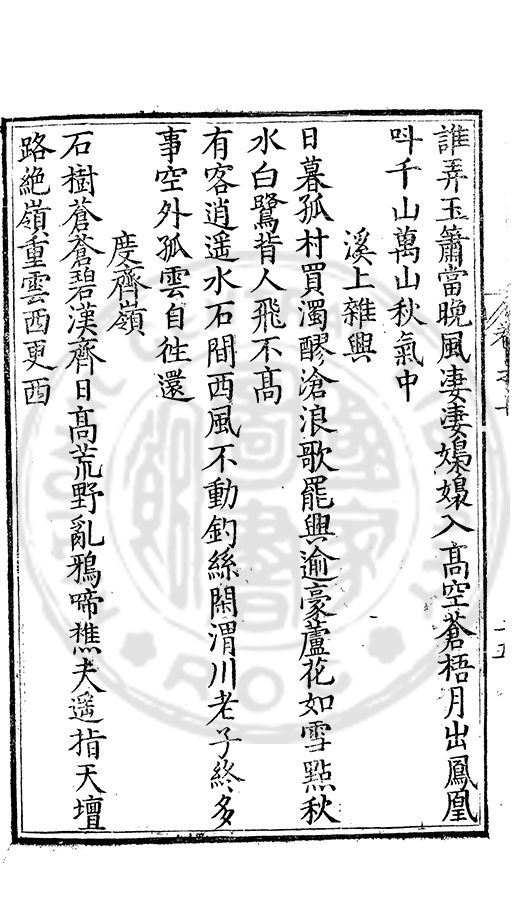 誰弄玉簫當晚風淒淒嫋嫋入高空蒼梧月出鳳凰
呌千山萬山秋氣中
溪上雜興
日暮孤村買濁醪滄浪歌罷興逾豪蘆花如雪點秋
水白鷺背人飛不高
有客逍遥水石間西風不動釣絲閑渭川老子終多
事空外孤雲自徃還
度齊嶺
石樹蒼蒼碧漢齊日高荒野亂鴉啼樵夫遥指天壇
路絶嶺重雲西更西